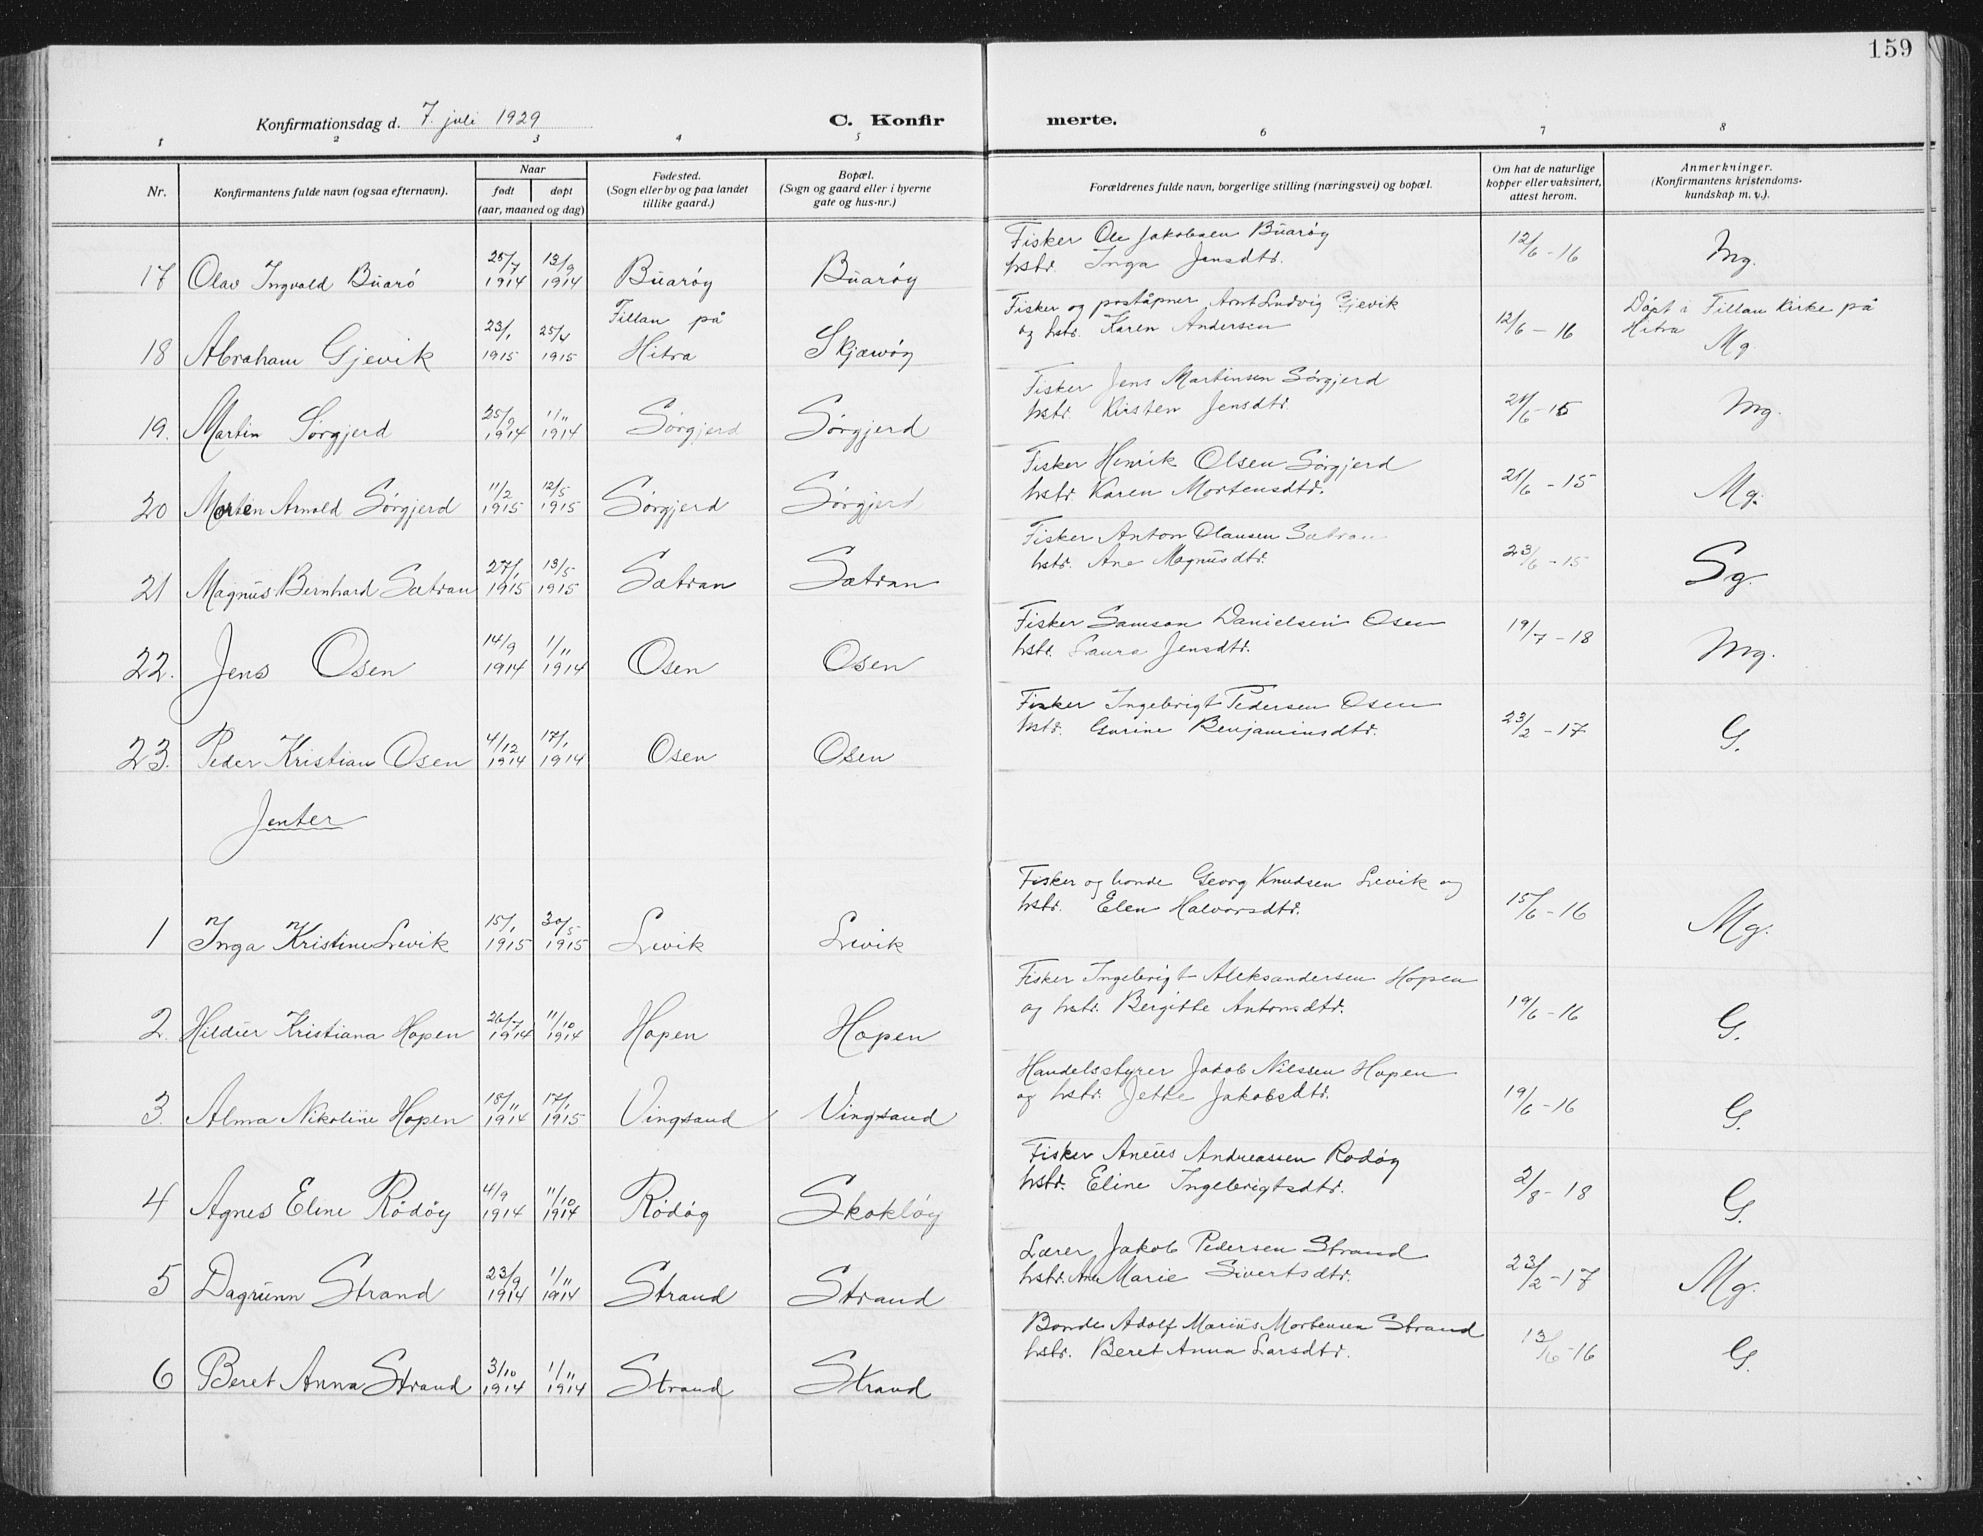 159
Konfirmationsdag d. 7. juli 1929 C. Konfirmerte.
1 2 3 4 5 6 7 8
Nr. Konfirmantens fulde navn (ogsaa efternavn). Naar født døpt (aar, maaned og dag) Fødested. (Sogn eller by og paa landet tillike gaard.) Bopæl. (Sogn og gaard eller i byerne gate og hus-nr.) Forældrenes fulde navn, borgerlige stilling (næringsvei) og bopæl. Om hat de naturlige kopper eller vaksinert, attest herom. Anmerkninger. (Konfirmantens kristendomskundskap m. v.).
17 Olav Ingvald Buarø 25/7 1914 13/9 1914 Buarøy Buarøy Fisker Ole Jakobsen Buarøy hstr. Inga Jensdtr. 12/6 - 16 Mg.
18 Abraham Gjevik 23/1 1915 25/4 1915 Fillan på Hitra Skjærvøy Fisker og poståpner Arnt Ludvig Gjevik og hstr. Karen Andersen 12/6 - 16 Døpt i Fillan kirke på Hitra Mg.
19. Martin Sørgjerd 25/9 1914 1/11 1914 Sørgjerd Sørgjerd Fisker Jens Martinsen Sørgjerd hstr. Kirsten Jensdtr. 21/6 - 15 Mg.
20 Morten Arnold Sørgjerd 11/2 1915 12/5 1915 Sørgjerd Sørgjerd Fisker Henrik Olsen Sørgjerd hstr. Karen Mortensdtr. 21/6 - 15 Mg.
21 Magnus Bernhard Sætran 27/1 1915 13/5 1915 Sætran Sætran Fisker Anton Olausen Sætran hstr. Ane Magnusdtr. 23/6 - 15 Sg.
22. Jens Osen 14/9 1914 1/11 1914 Osen Osen Fisker Samson Danielsen Osen hstr. Laura Jensdtr. 19/7 - 18 Mg.
23. Peder Kristian Osen 4/12 1914 17/1 1914 Osen Osen Fisker Ingebrigt Pedersen Osen hstr. Gurine Benjaminsdtr. 23/2 - 17 G.
Jenter
1 Inga Kristine Levik 15/1 1915 30/5 1915 Levik Levik Fisker og bonde Georg Knudsen Levik og hstr. Elen Halvorsdtr. 15/6 - 16 Mg.
2. Hildur Kristiana Hopen 26/7 1914 11/10 1914 Hopen Hopen Fisker Ingebrigt Aleksandersen Hopen og hstr. Bergitte Antonsdtr. 19/6 - 16 G.
3. Alma Nikoline Hopen 18/11 1914 17/1 1915 Vingsand Vingsand Handelsstyrer Jakob Nilssen Hopen og hstr. Jette Jakobsdtr. 19/6 - 16 G.
4 Agnes Eline Rödöy 4/9 1914 11/10 1914 Rödöy Skokløy Fisker Aneus Andreassen Rodøy hstr. Eline Ingebrigtsdtr. 2/8 - 18 G.
5 Dagrunn Strand 23/9 1914 1/11 1914 Strand Strand Lærer Jakob Pedersen Strand hstr. Ane Marie Sivertsdtr. 23/2 - 17 Mg.
6 Beret Anna Strand 3/10 1914 1/11 1914 Strand Strand Bonde Adolf Marius Mortensen Strand hstr. Beret Anna Larsdtr. 13/6 - 16 G.